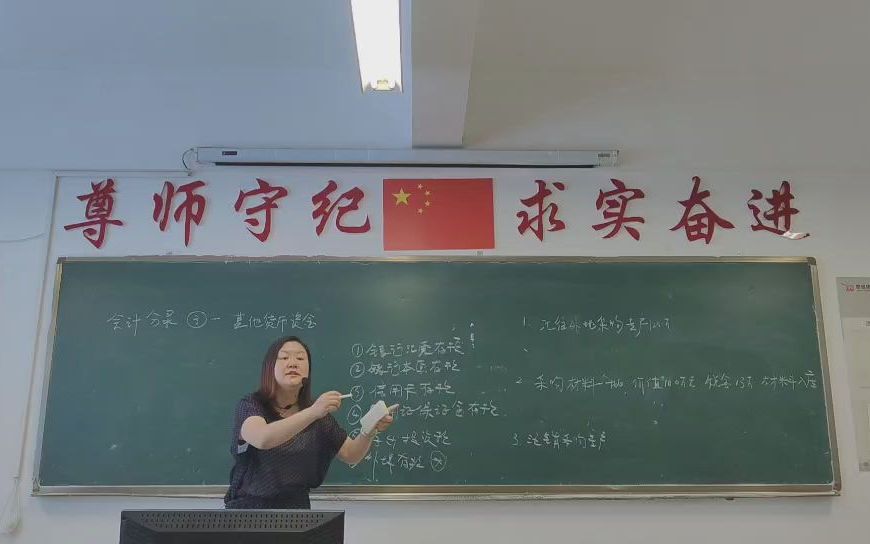 尊师守纪 求实奋进
会计分录 ② 一 其他货币资金
① 银行汇票存款
② 银行本票存款
③ 信用卡存款
④ 证保证金存款
投资款
外埠存款
1. 汇往外地采购专户
2. 采购材料一批,价值10万元 税金1.3万 材料入库
3. 注销采购专户